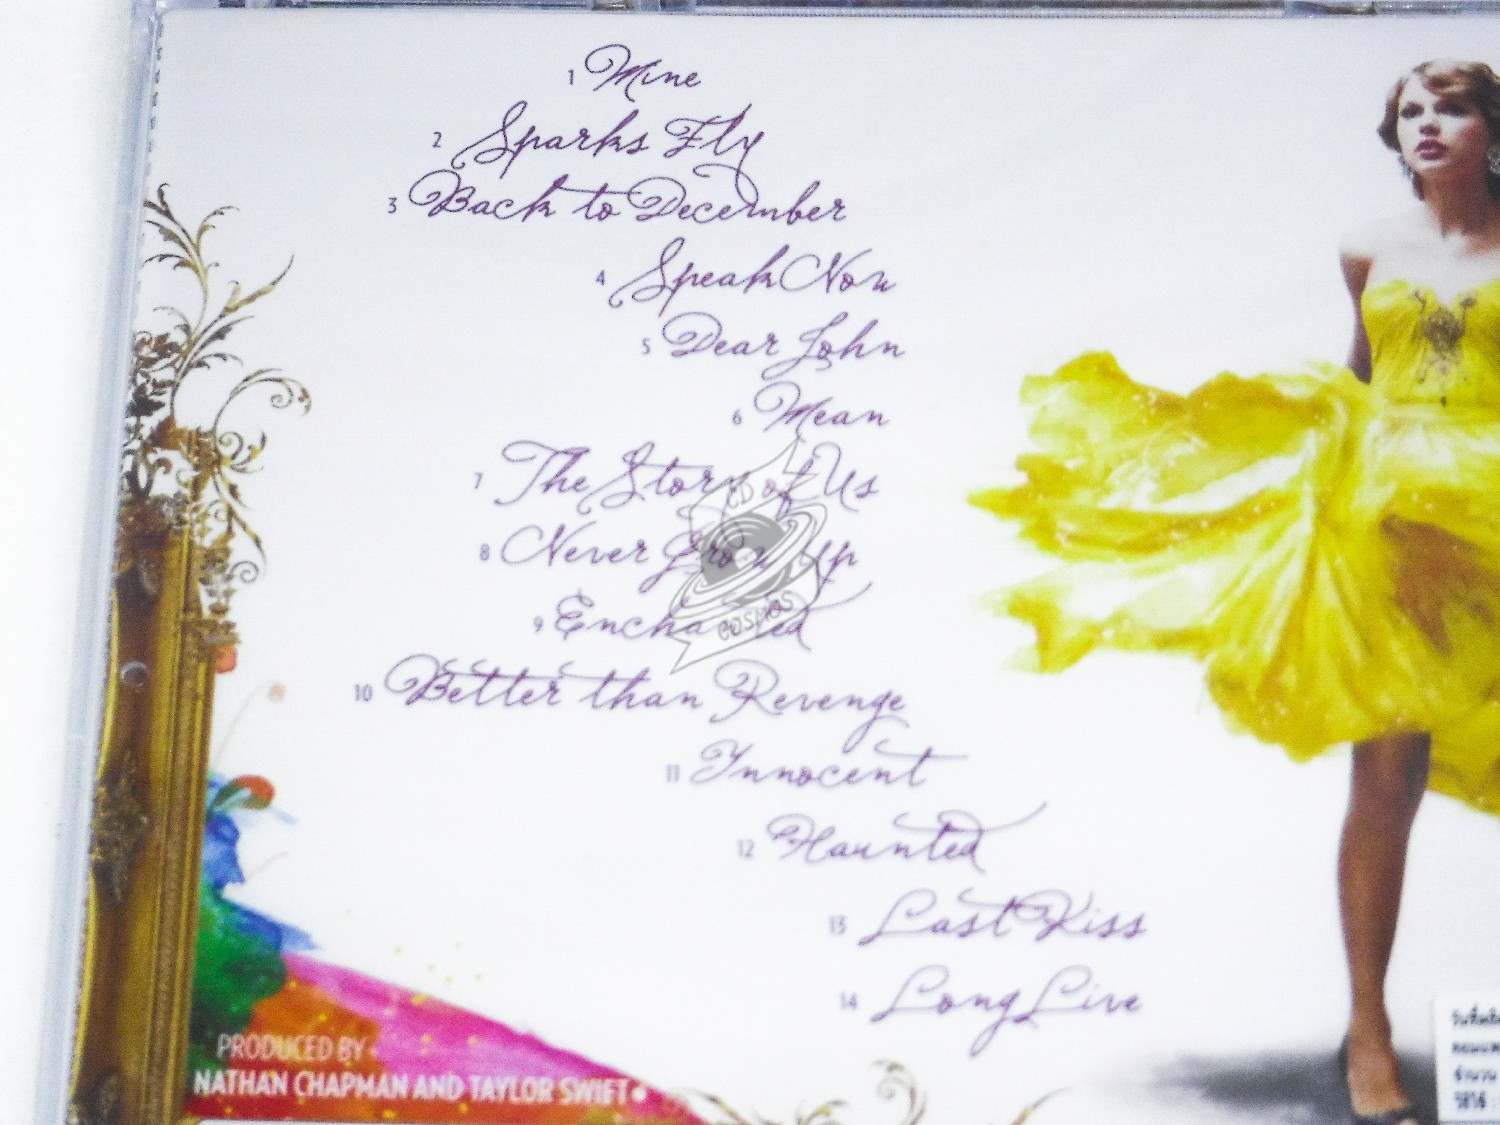 1 Mine
2 Sparks Fly
3 Back to December
4 Speak Now
5 Dear John
6 Mean
7 The Story of Us
8 Never Grow Up
9 Enchanted
10 Better than Revenge
11 Innocent
12 Haunted
13 Last Kiss
14 Long Live
CD
COSMOS
PRODUCED BY
NATHAN CHAPMAN AND TAYLOR SWIFT
จำนวน
วิธีใช้ :